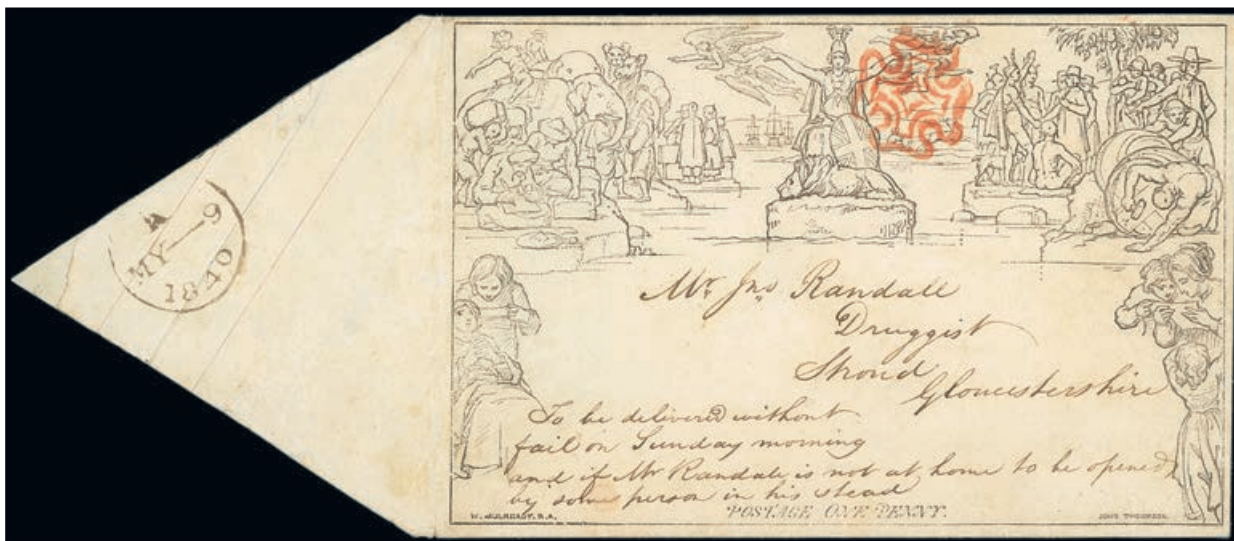 A
MY—9
1840
Mr. Jno Randall
Druggist
Stroud
Gloucestershire
To be delivered without
fail on Sunday morning
and if Mr Randall is not at home to be opened
by some person in his stead
POSTAGE ONE PENNY.
W. MULREADY, R.A.
JOHN THOMPSON.